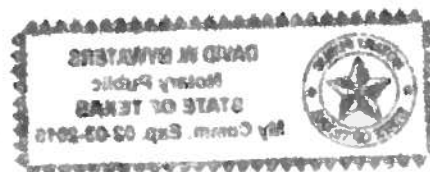 DAVID W. BYWATERS
Notary Public
STATE OF TEXAS
My Comm. Exp. 02-03-2016